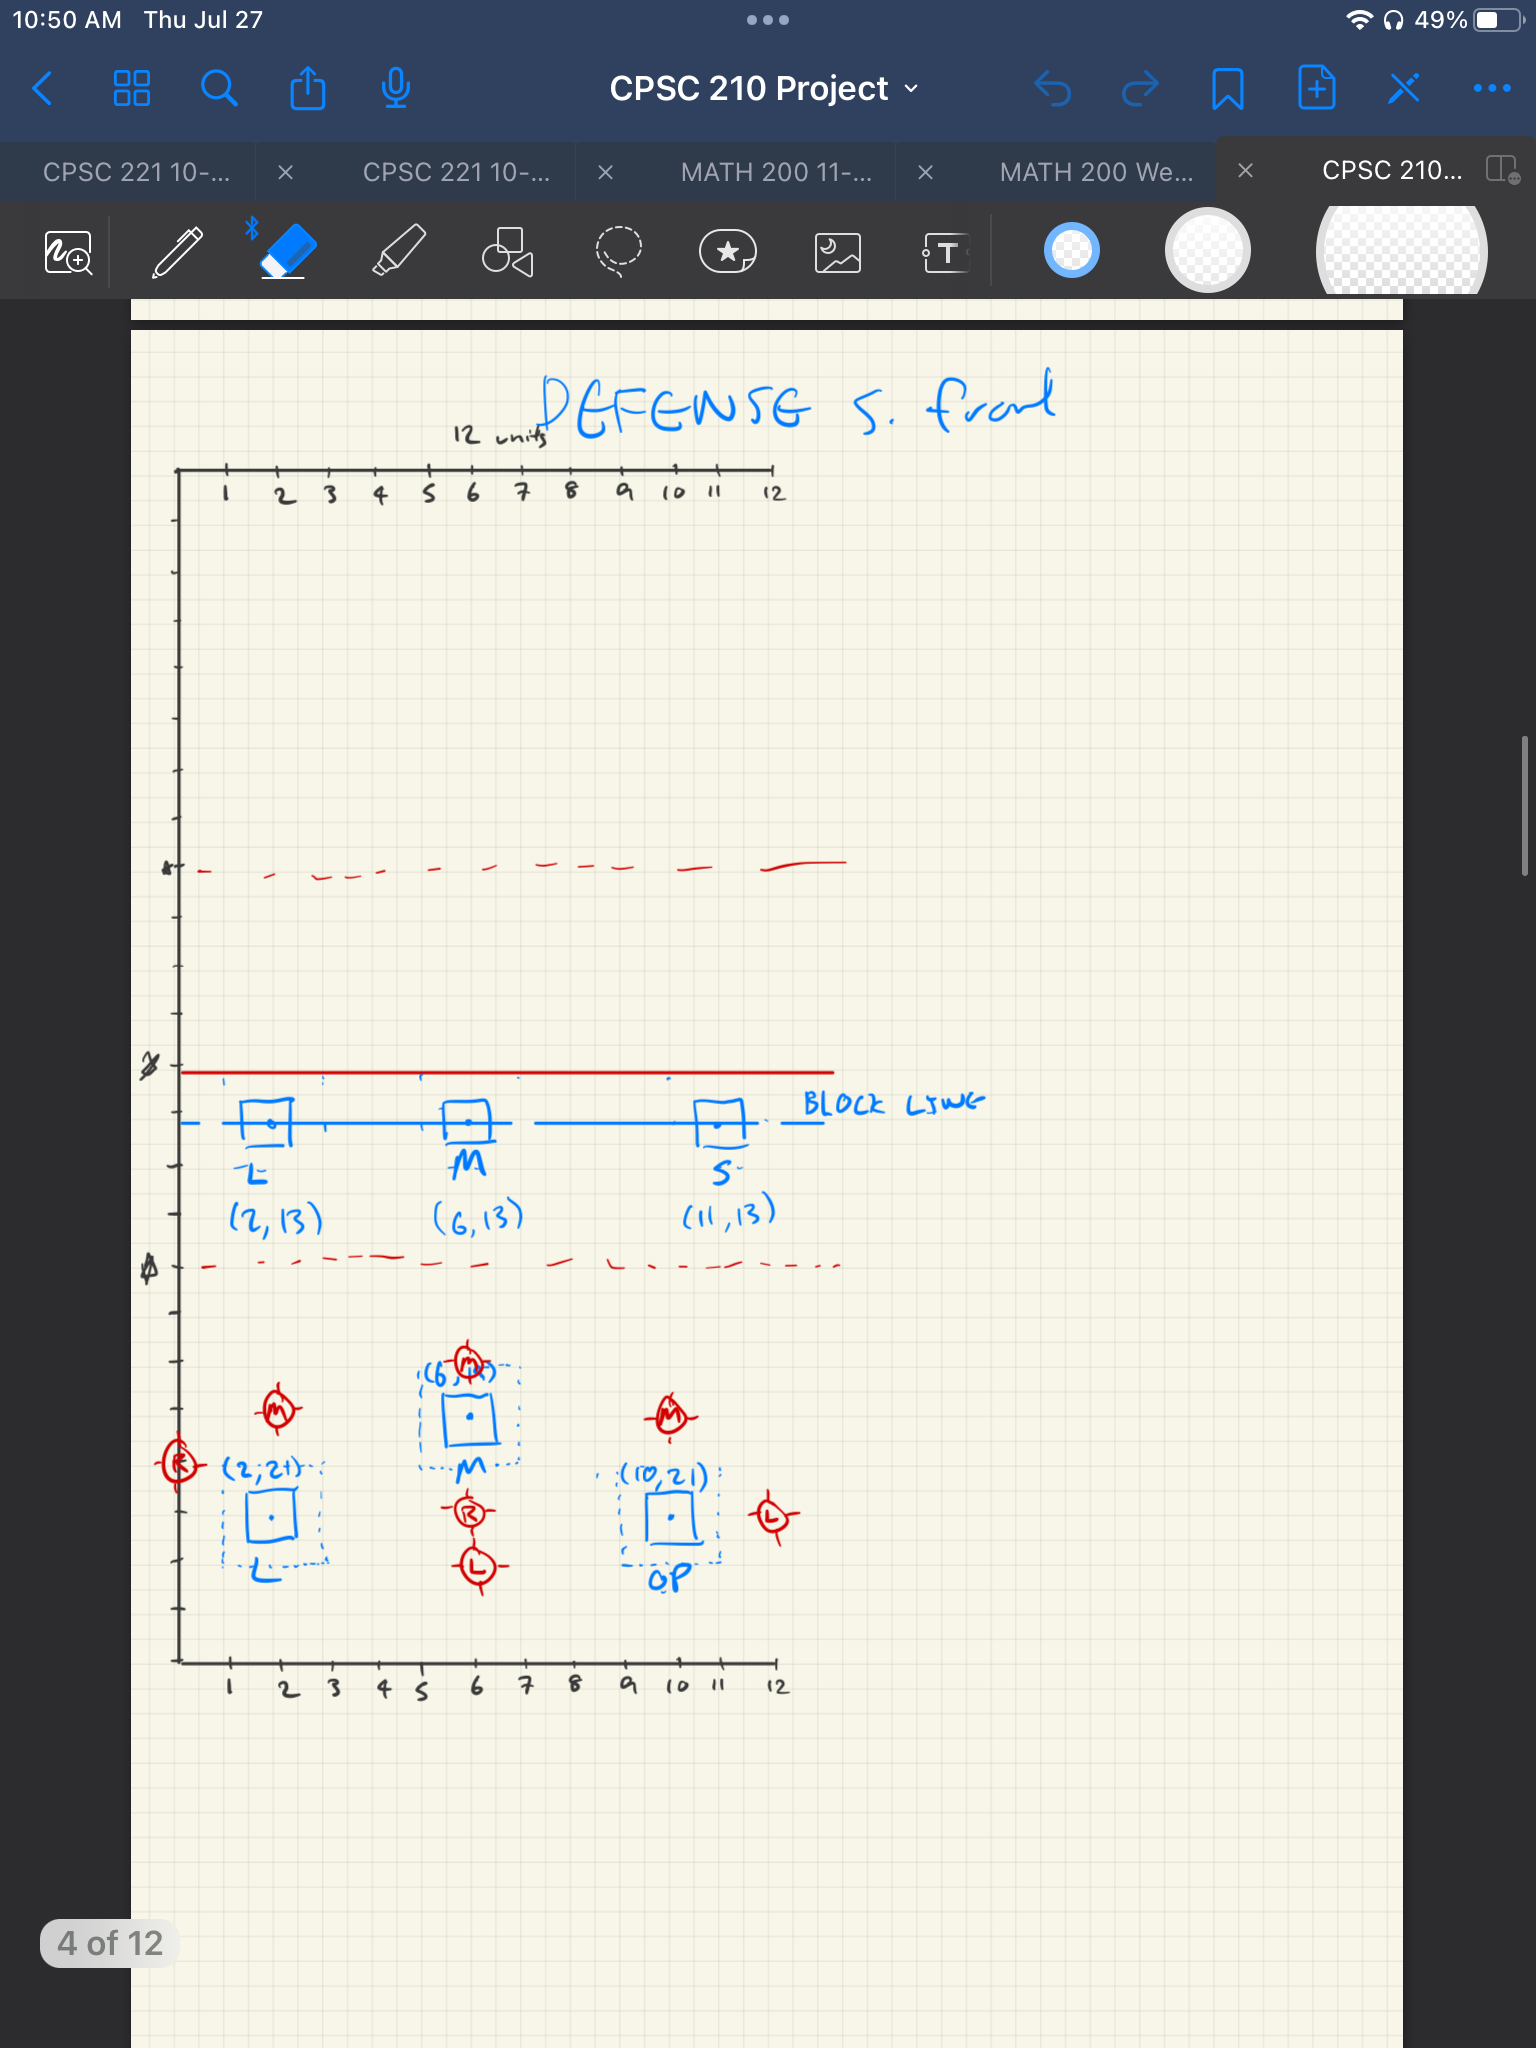 10:50 AM Thu Jul 27
49%
CPSC 210 Project
CPSC 221 10-...
CPSC 221 10-...
MATH 200 11-...
MATH 200 We...
CPSC 210...
T
DEFENSE S. front
12 units
1 2 3 4 5 6 7 8 9 10 11 12
BLOCK LINE
L M S
(2,13) (6,13) (11,13)
M
M M
R (2,21) M (10,21)
R L
L L OP
1 2 3 4 5 6 7 8 9 10 11 12
4 of 12